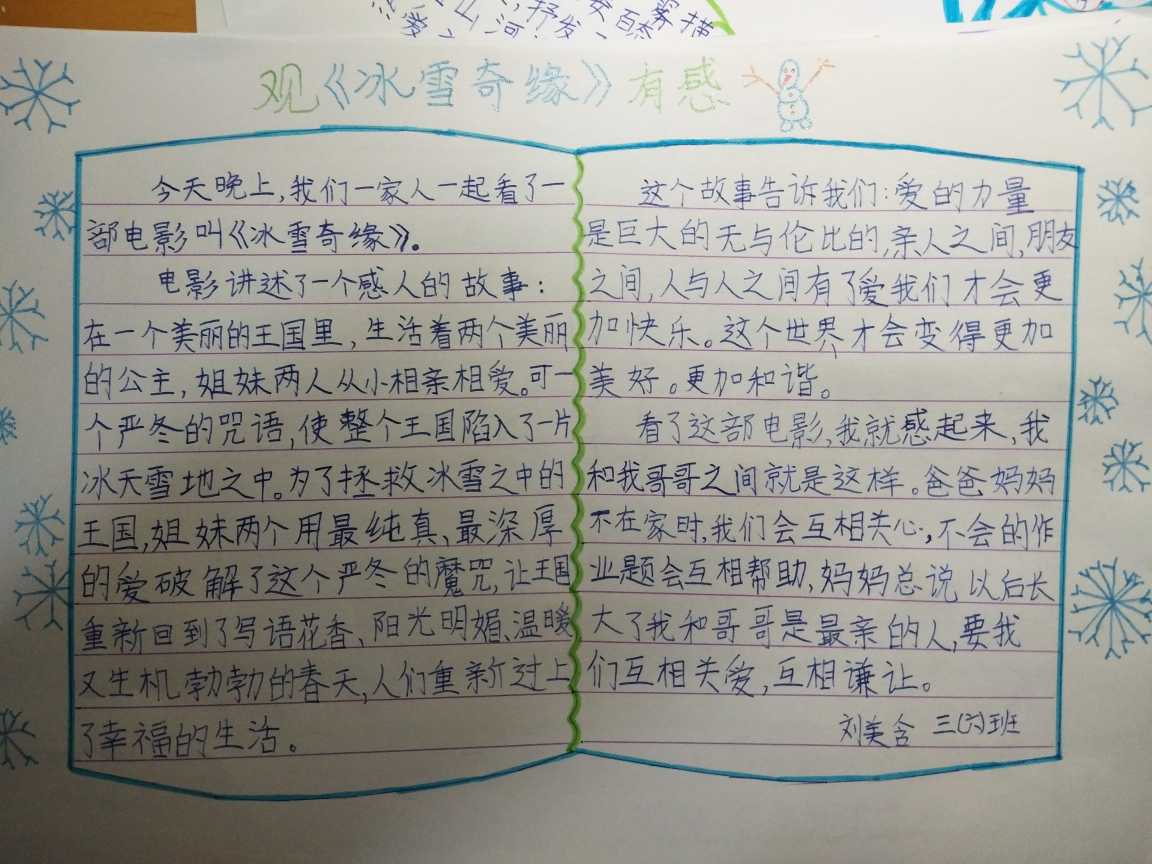 爱 山 河 抒发 百 雾 描
观《冰雪奇缘》有感
今天晚上,我们一家人一起看了一
部电影叫《冰雪奇缘》。
电影讲述了一个感人的故事:
在一个美丽的王国里,生活着两个美丽
的公主,姐妹两人从小相亲相爱。可一
个严冬的咒语,使整个王国陷入了一片
冰天雪地之中。为了拯救冰雪之中的
王国,姐妹两个用最纯真、最深厚
的爱破解了这个严冬的魔咒,让王国
重新回到了写语花香、阳光明媚、温暖
又生机勃勃的春天,人们重新过上
了幸福的生活。
这个故事告诉我们:爱的力量
是巨大的无与伦比的,亲人之间,朋友
之间,人与人之间有了爱我们才会更
加快乐。这个世界才会变得更加
美好。更加和谐。
看了这部电影,我就感起来,我
和我哥哥之间就是这样。爸爸妈妈
不在家时,我们会互相关心,不会的作
业题会互相帮助,妈妈总说以后长
大了我和哥哥是最亲的人,要我
们互相关爱,互相谦让。
刘美含 三(六)班